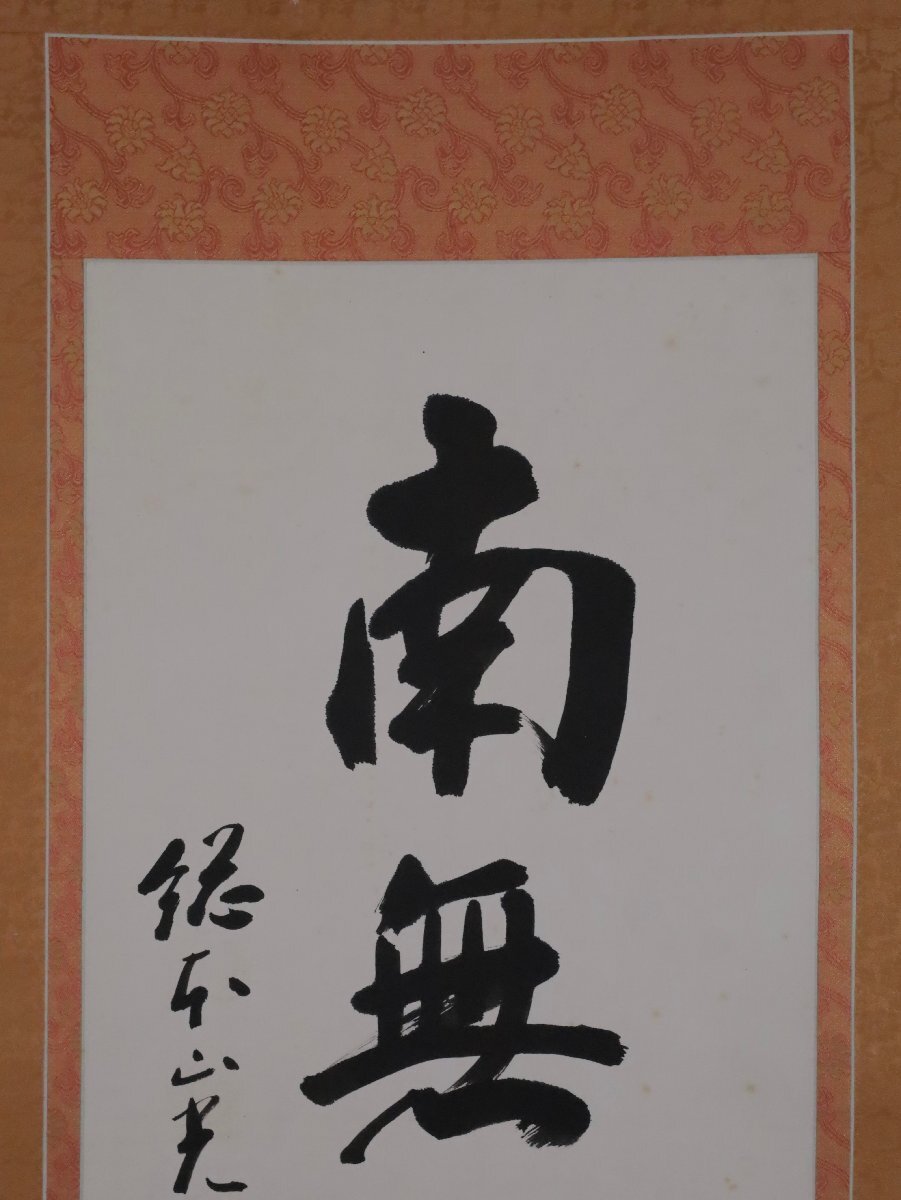 南無
総本山光